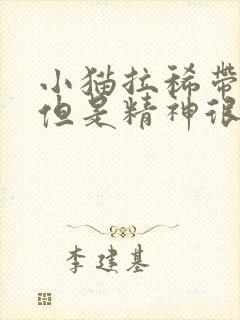 小猫拉稀带
但是精神很
李建基